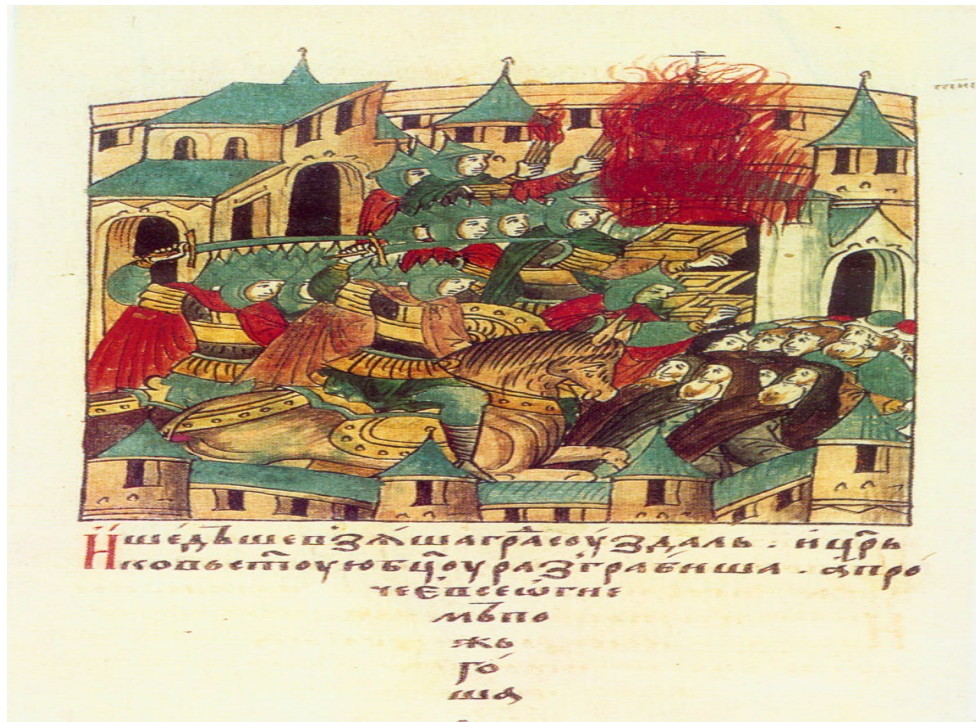 И шедъше взѧша гра́ соу́здаль · и цр҃ь
коⷡ҇ь ст҃оую бц҃оу разгра́биша · а про
чее все ѡгне
мъ по
жь
го́
ша